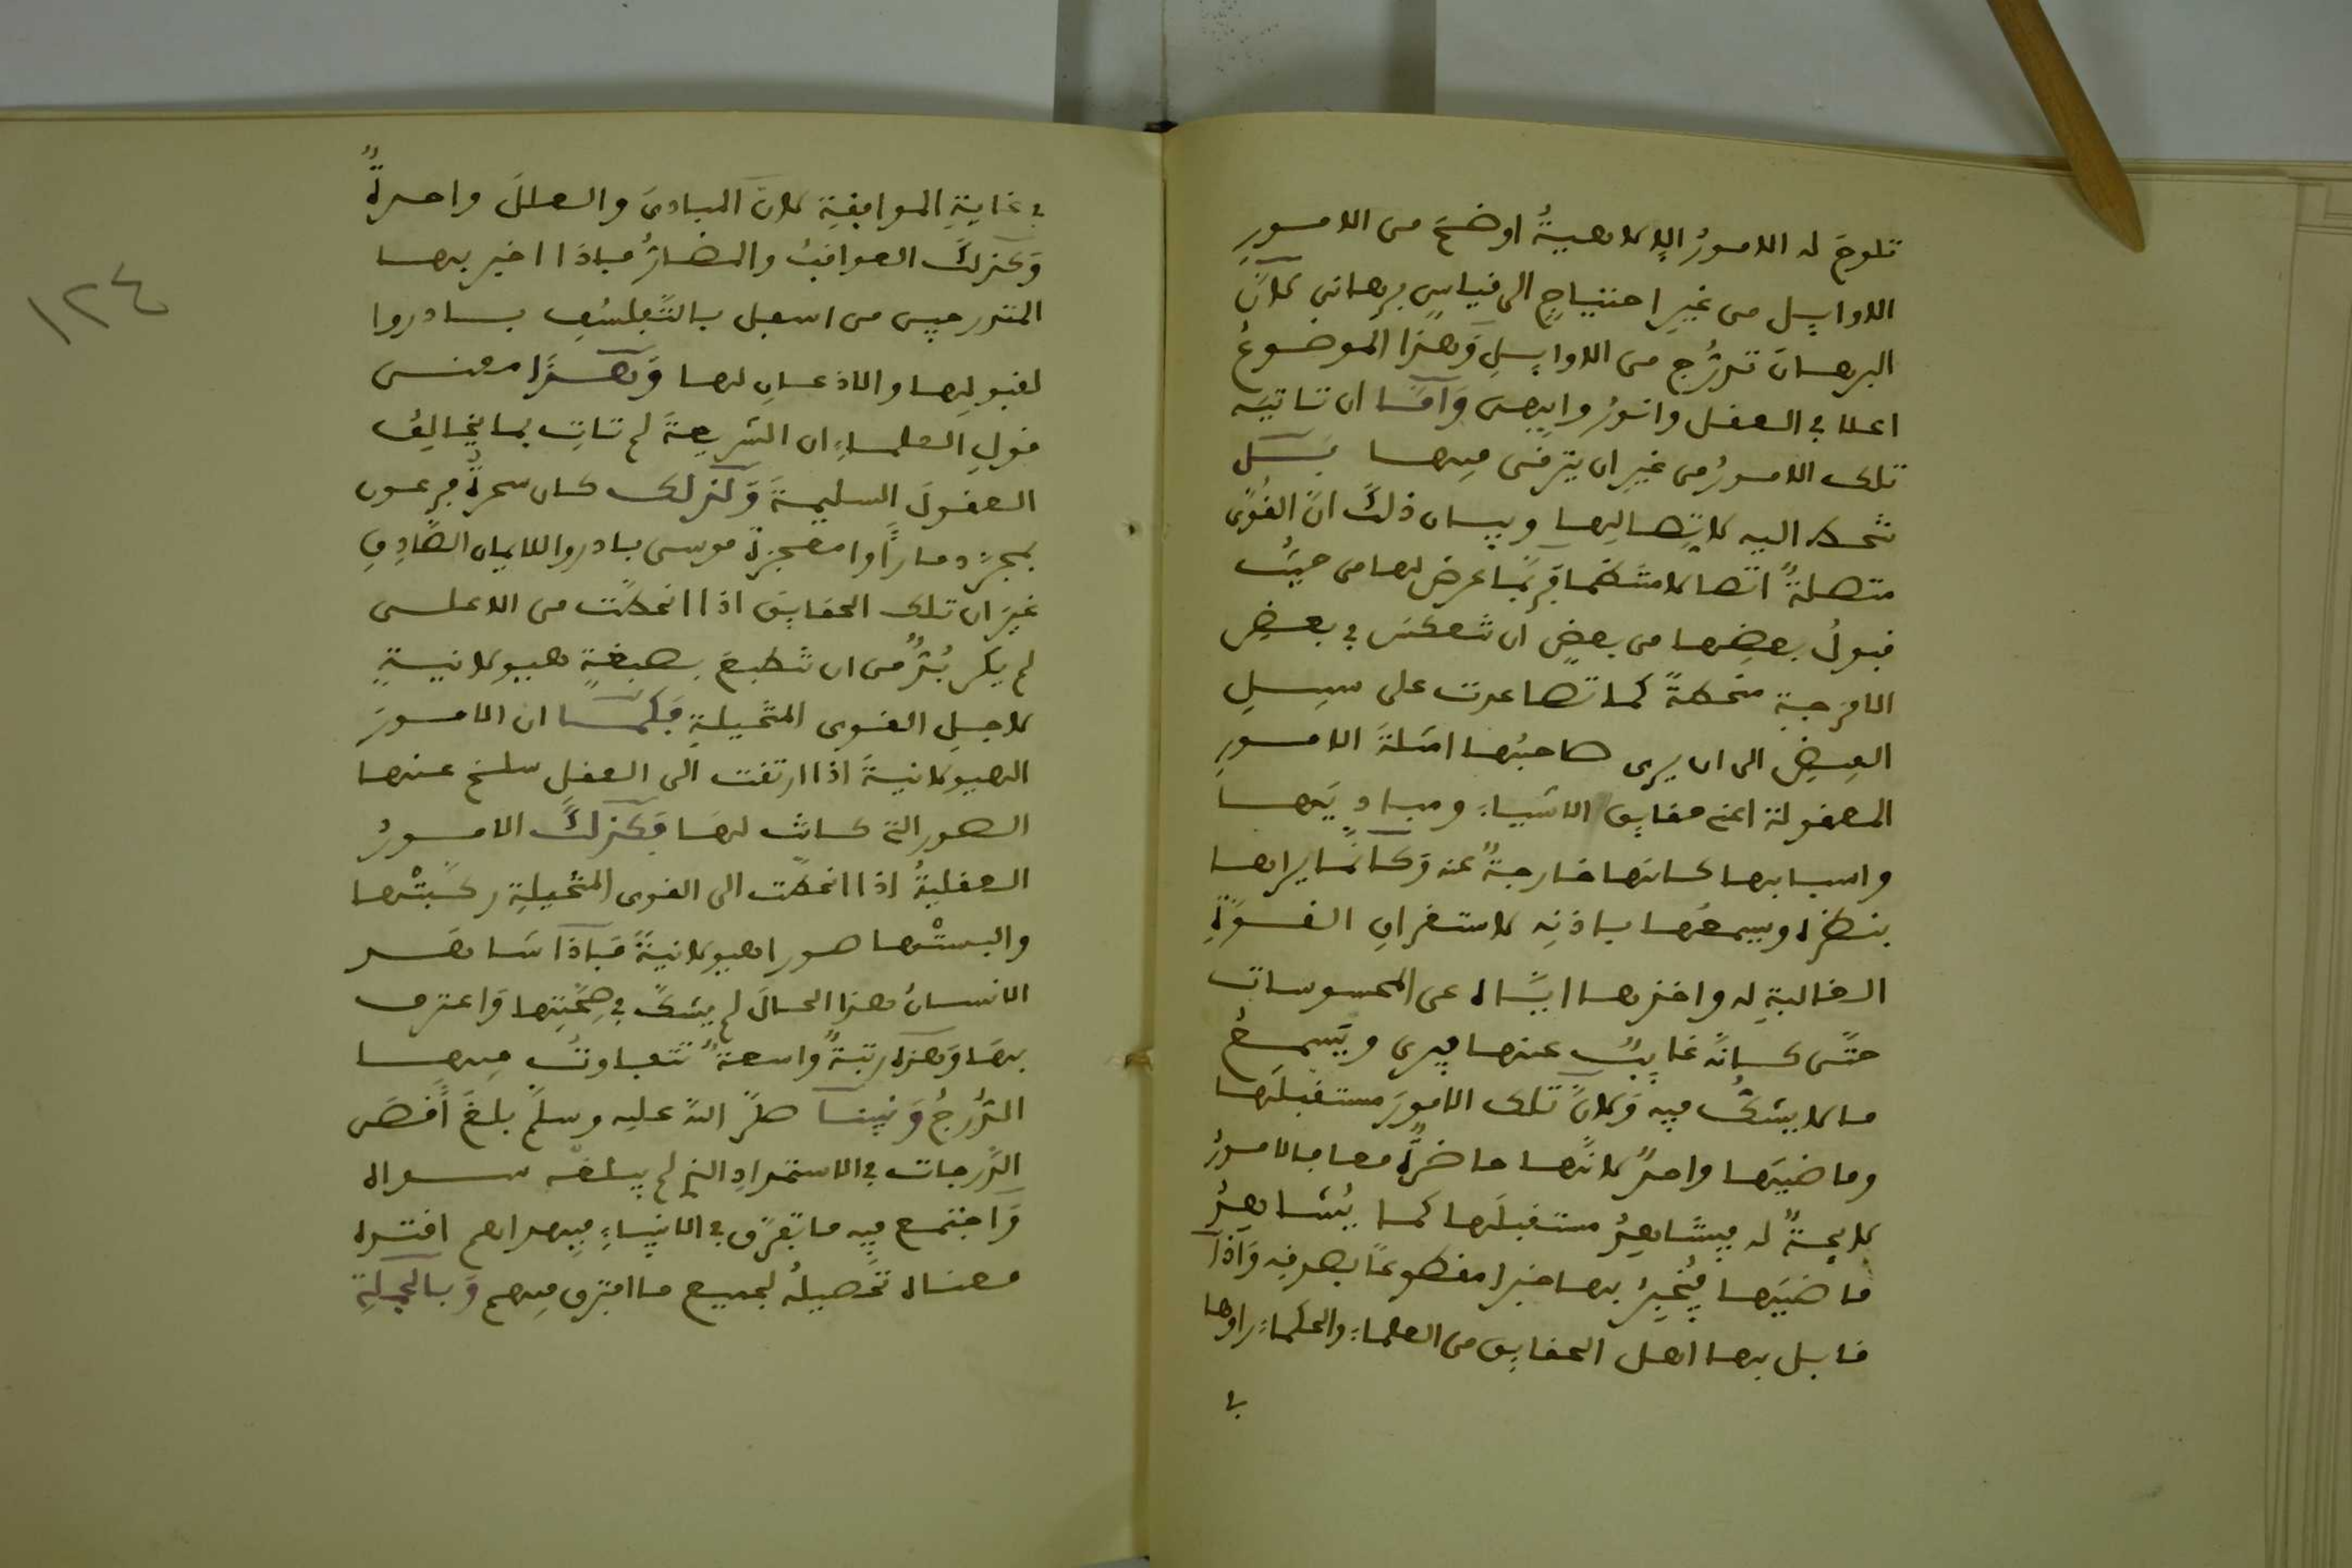 تلوح له الامورُ الإلاهيةُ اوضحَ من الامورِ
الاوايل من غيرِ احتياجٍ الى قياسٍ برهاني لانّ
البرهانَ تدرُّج من الاوايلِ وهذا الموضوعُ
اعلا في العقل وانورُ وابهى وامّا ان تاتيَه
تلك الامورُ من غيرِ ان يترقى فيها بل
تنحط اليه لاتّصالها وبيان ذلك انّ القُوى
متصلةٌ اتّصالا متّضما فربّما عرض لها من حيثُ
قبولُ بعضِها من بعضٍ ان تنعكس في بعضِ
الامزجة منحطةً كما تصاعدت على سبيلِ
الفيضِ الى ان يرى صاحبُها امثلةَ الامورِ
المعقولة اعني حقايق الاشياءِ ومباديَها
واسبابها كانها خارجةٌ عنه وكانّما يراها
بنظره ويسمعُها باذنِه لاستغراقِ القوّةِ
الغالبةِ له واخذها ايّاه عن المحسوسات
حتّى كانّه غايبٌ عنها فيرى ويَسمعُ
ما لا يشكُّ فيه ولانّ تلك الامورَ مستقبلَها
وماضيَها واحدٌ لانّها حاضرةٌ معا فالامورُ
لايحةٌ له فيشاهِدُ مستقبلَها كما يُشاهِدُ
ماضيَها فيُخبِرُ بها خبرا مقطوعًا بصدقِه واذا
قابل بها اهل الحقايق من العلماءِ والحكماءِ راوها
في
١٢٤
في غايةِ الموافقةِ لانّ المبادئَ والعللَ واحدةٌ
وكذلك العواقبُ والمضارُ فاذا اخبر بها
المتدرجين من اسفل بالتّفلسُفِ بادروا
لقبولِها والاذعانِ لها وهذا معنى
قولِ العلماءِ ان الشريعةَ لم تاتِ بما يخالِفُ
العقولَ السليمةَ وكذلك كان سحرةُ فرعون
بمجرّد ما راوا معجزةَ موسى بادروا للايمان الصّادِقِ
غيرَ ان تلك الحقايقَ اذا انحطّت من الاعلى
لم يكن بُدٌّ من ان تنطبعَ بصبغةٍ هيولانيةٍ
لاجلِ القوى المتخيّلةِ فكما ان الامورَ
الهيولانيةَ اذا ارتقت الى العقلِ سلخ عنها
الصور التي كانت لها فكذلك الامورُ
العقليةُ اذا انحطّت الى القوى المتخيّلةِ ركّبتْها
والبستْها صورا هيولانيةً فاذا شاهد
الانسانُ هذا الحالَ لم يشكّ في صِحّتِها واعترف
بها وهذه رتبةٌ واسعةٌ تتفاوتُ فيها
الدُّرجُ ونبينا صلى اللهُ عليه وسلّم بلغَ اقصى
الدّرجات في الاستمدادِ الذي لم يبلغه سواه
واجتمع فيه ما تفرّق في الانبياءِ فبهداهم اقتده
معناه تحصيلُه لجميع ما افترق فيهم وبالجملةِ